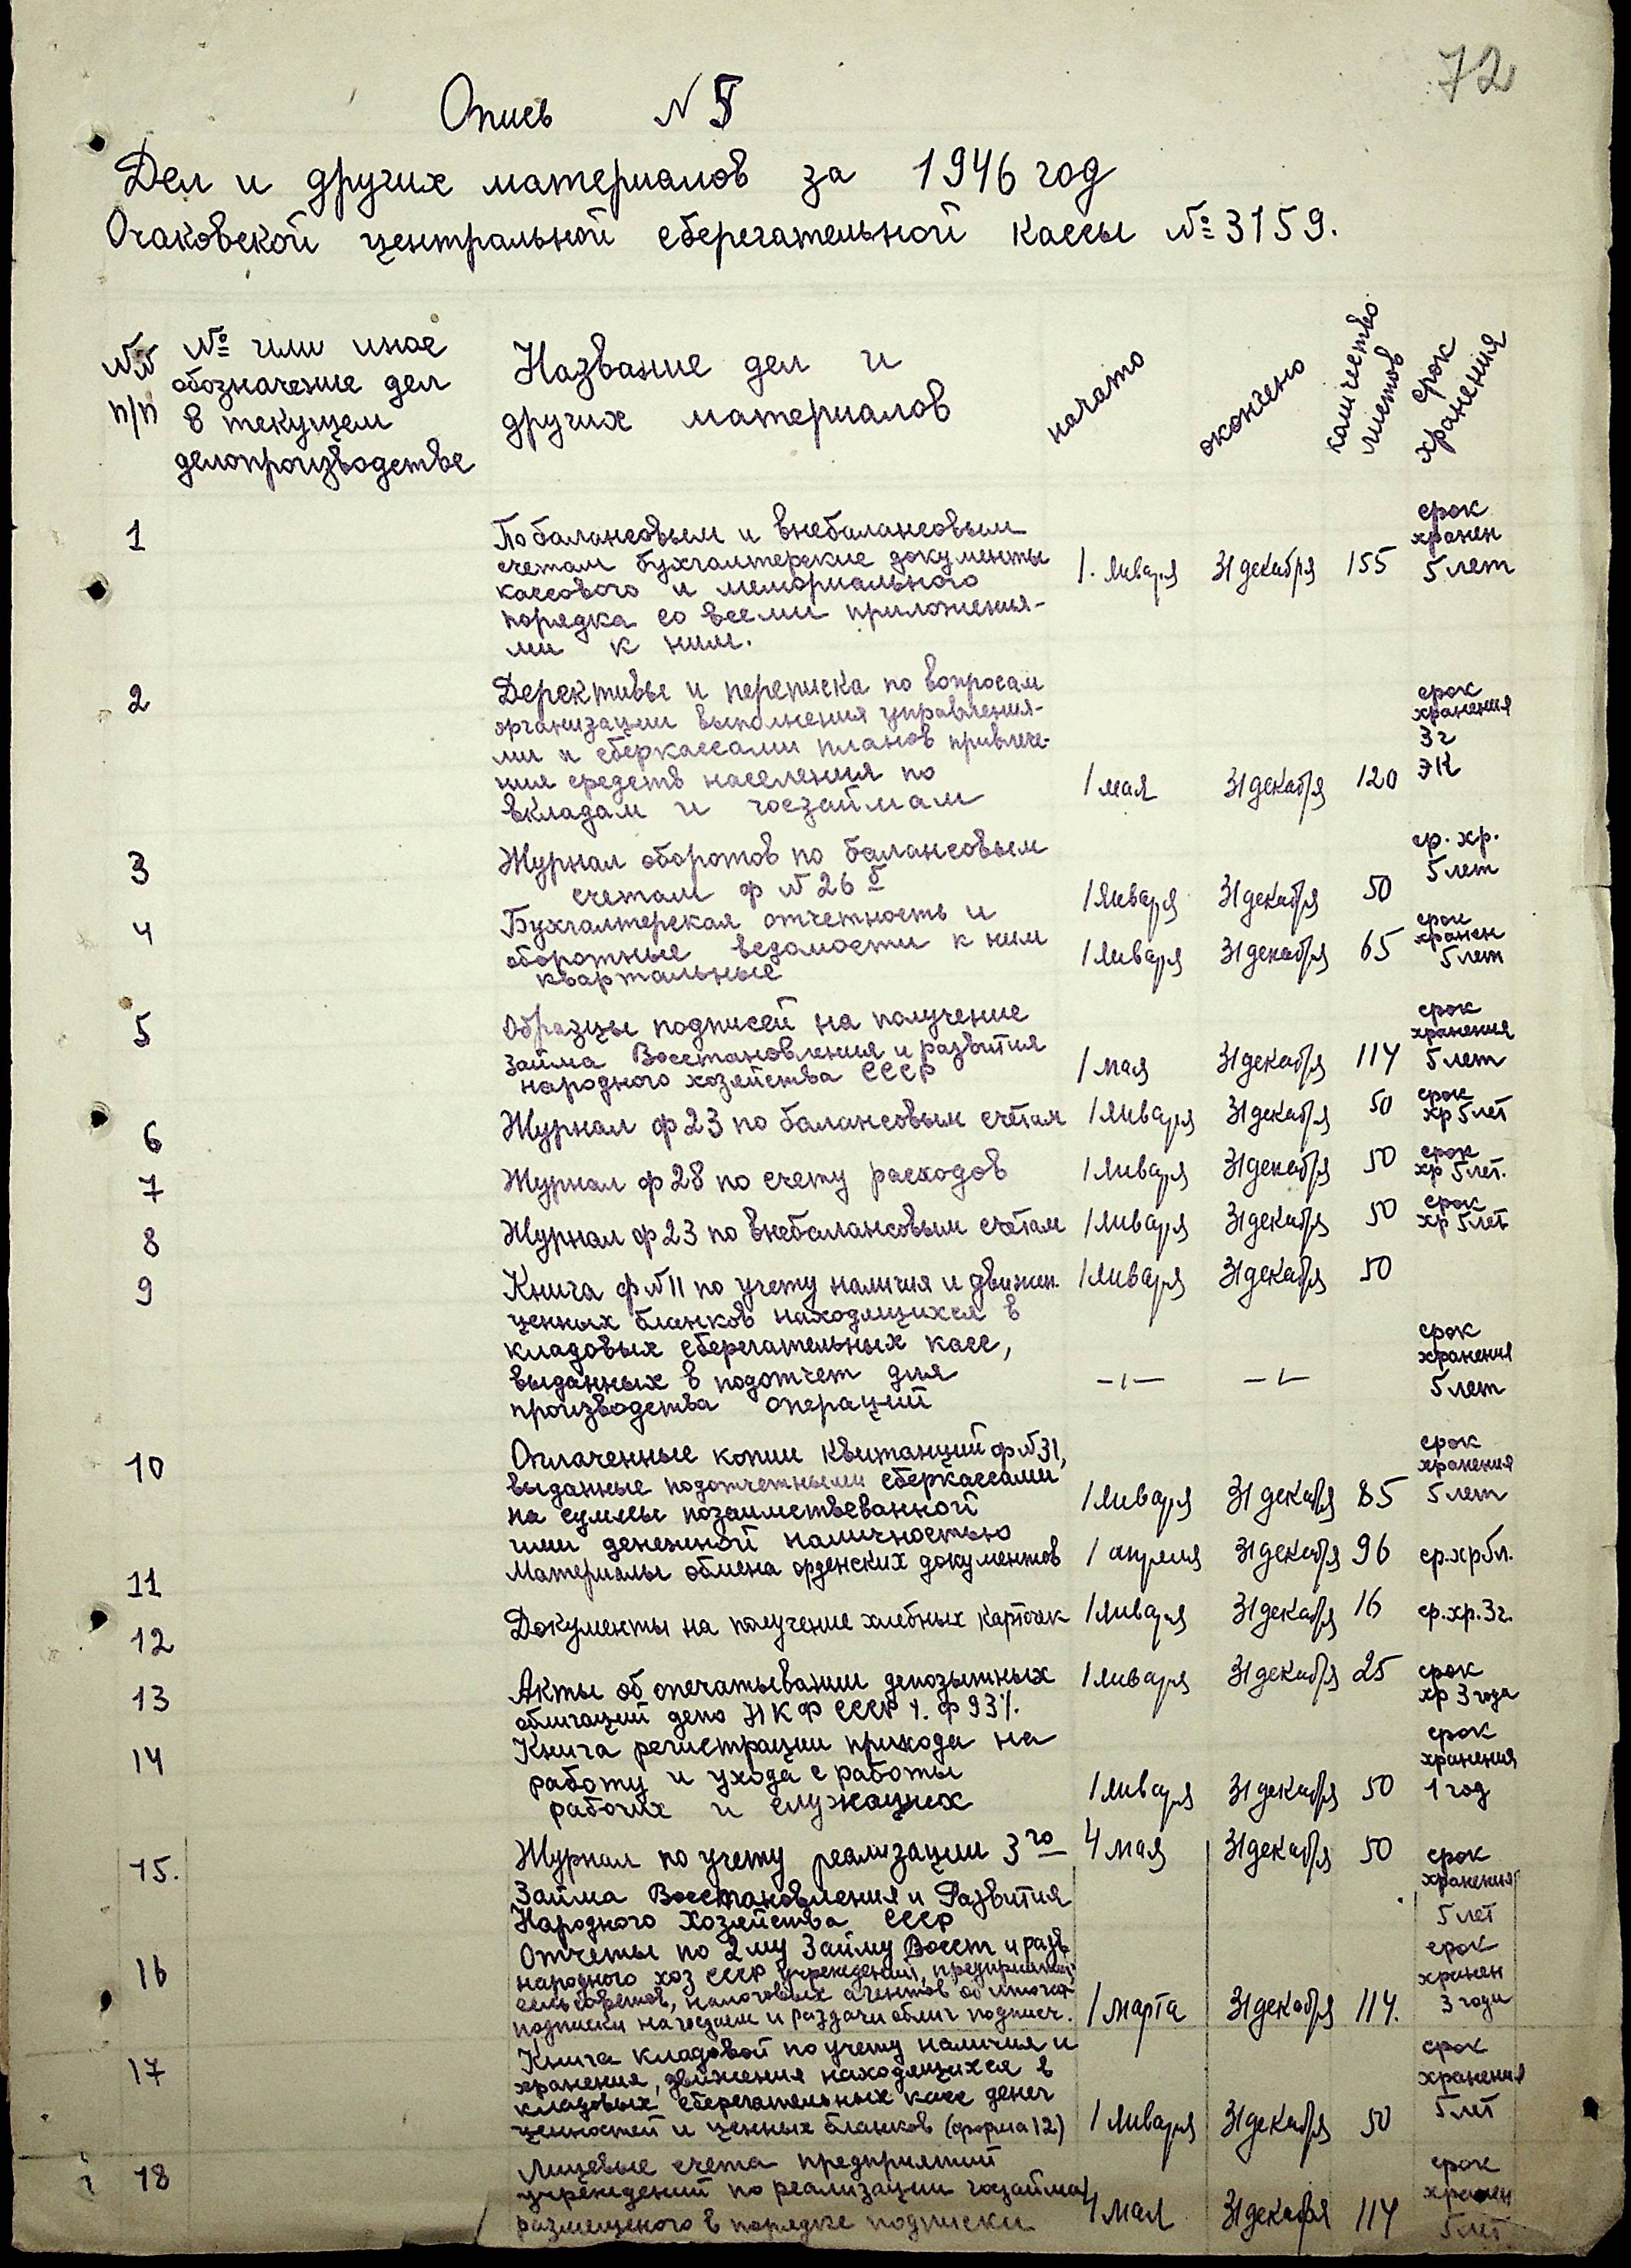 72
Опись № 5
Дел и других материалов за 1946 год
Очаковской центральной сберегательной кассы № 3159.
№№ п/п
№ или иное обозначение дел в текущем делопроизводстве
Название дел и других материалов
начато
окончено
количество листов
срок хранения
1
По балансовым и внебалансовым
счетам бухгалтерские документы
кассового и мемориального
порядка со всеми приложения-
ми к ним.
1. января 31 декабря 155 срок хранен 5 лет
2
Дерективы и переписка по вопросам
организации выполнения управления-
ми и сберкассами планов привлече-
ния средств населения по
вкладам и госзаймам
1 мая 31 декабря 120 срок хранения 3 г ЭК
3
Журнал оборотов по балансовым
счетам ф № 26 б
1 января 31 декабря 50 ср. хр. 5 лет
4
Бухгалтерская отчетность и
оборотные ведомости к ним
квартальные
1 января 31 декабря 65 срок хранен 5 лет
5
Образцы подписей на получение
займа Восстановления и развития
народного хозяйства СССР
1 мая 31 декабря 114 срок хранения 5 лет
6 Журнал ф 23 по балансовым счетам 1 января 31 декабря 50 срок хр 5 лет
7 Журнал ф 28 по счету расходов 1 января 31 декабря 50 срок хр 5 лет.
8 Журнал ф 23 по внебалансовым счетам 1 января 31 декабря 50 срок хр 5 лет
9 Книга ф № 11 по учету наличия и движен. 1 января 31 декабря 50
ценных бланков находящихся в
кладовых сберегательных касс,
выданных в подотчет для
производства операций
–ι– –ι– срок хранения 5 лет
10
Оплаченные копии квитанций ф № 31,
выданные подотчетными сберкассами
на суммы позаимствеванной
ими денежной наличностью
1 января 31 декабря 85 срок хранения 5 лет
11 Материалы обмена орденских документов 1 апреля 31 декабря 96
12 Документы на получение хлебных карточек 1 января 31 декабря 16 ср. хр. 3 г.
13 Акты об опечатывании депозытных 1 января 31 декабря 25 срок хр 3 года
облигаций депо НКФ СССР ф 93
14
Книга регистрации прихода на
работу и ухода с работы
рабочих и служащих
1 января 31 декабря 50 срок хранения 1 год
15. Журнал по учету реализации 3го 4 мая 31 декабря 50 срок хранения 5 лет
Займа Восстановления и Развития
Народного Хозяйства СССР
16
Отчеты по 2му Займу Восст и разв
народного хоз СССР учреждений, предприятий,
сельсоветов, налоговых агентов об итогах
подписки на госзаем и раздачи облиг подписч.
1 марта 31 декабря 114. срок хранен 3 года
17
Книга кладовой по учету наличия и
хранения, движения находящихся в
кладовых сберегательных касс денег
ценностей и ценных бланков (форма 12)
1 января 31 декабря 50 срок хранения 5 лет
18
Лицевые счета предприятий
учреждений по реализации госзайма
размещеного в порядке подписки
4 мая 31 декабря 114 срок хранен 5 лет